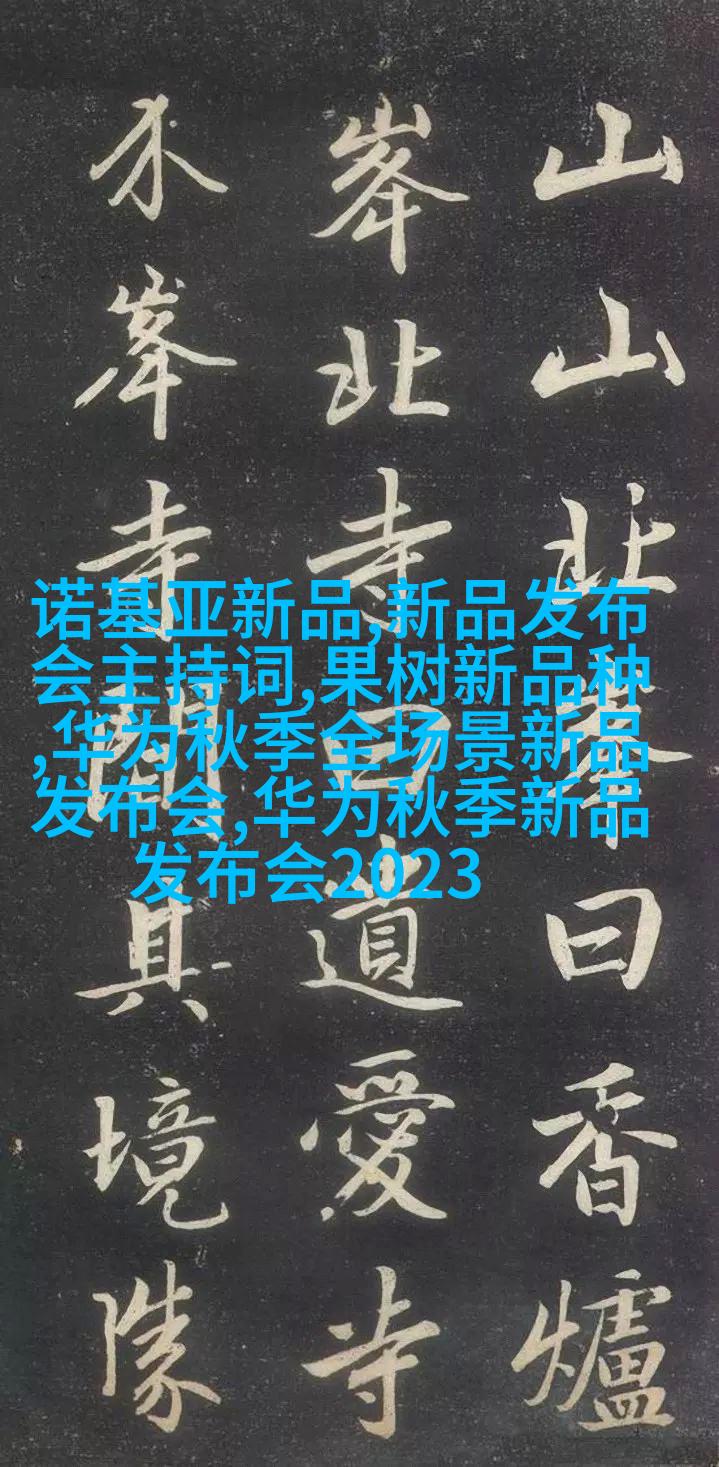 山山北峯曰香爐
峯北寺曰遺愛寺
介峯寺間其境勝
诺基亚新品,新品发布
会主持词,果树新品种
,华为秋季全场景新品
发布会,华为秋季新品
发布会2023